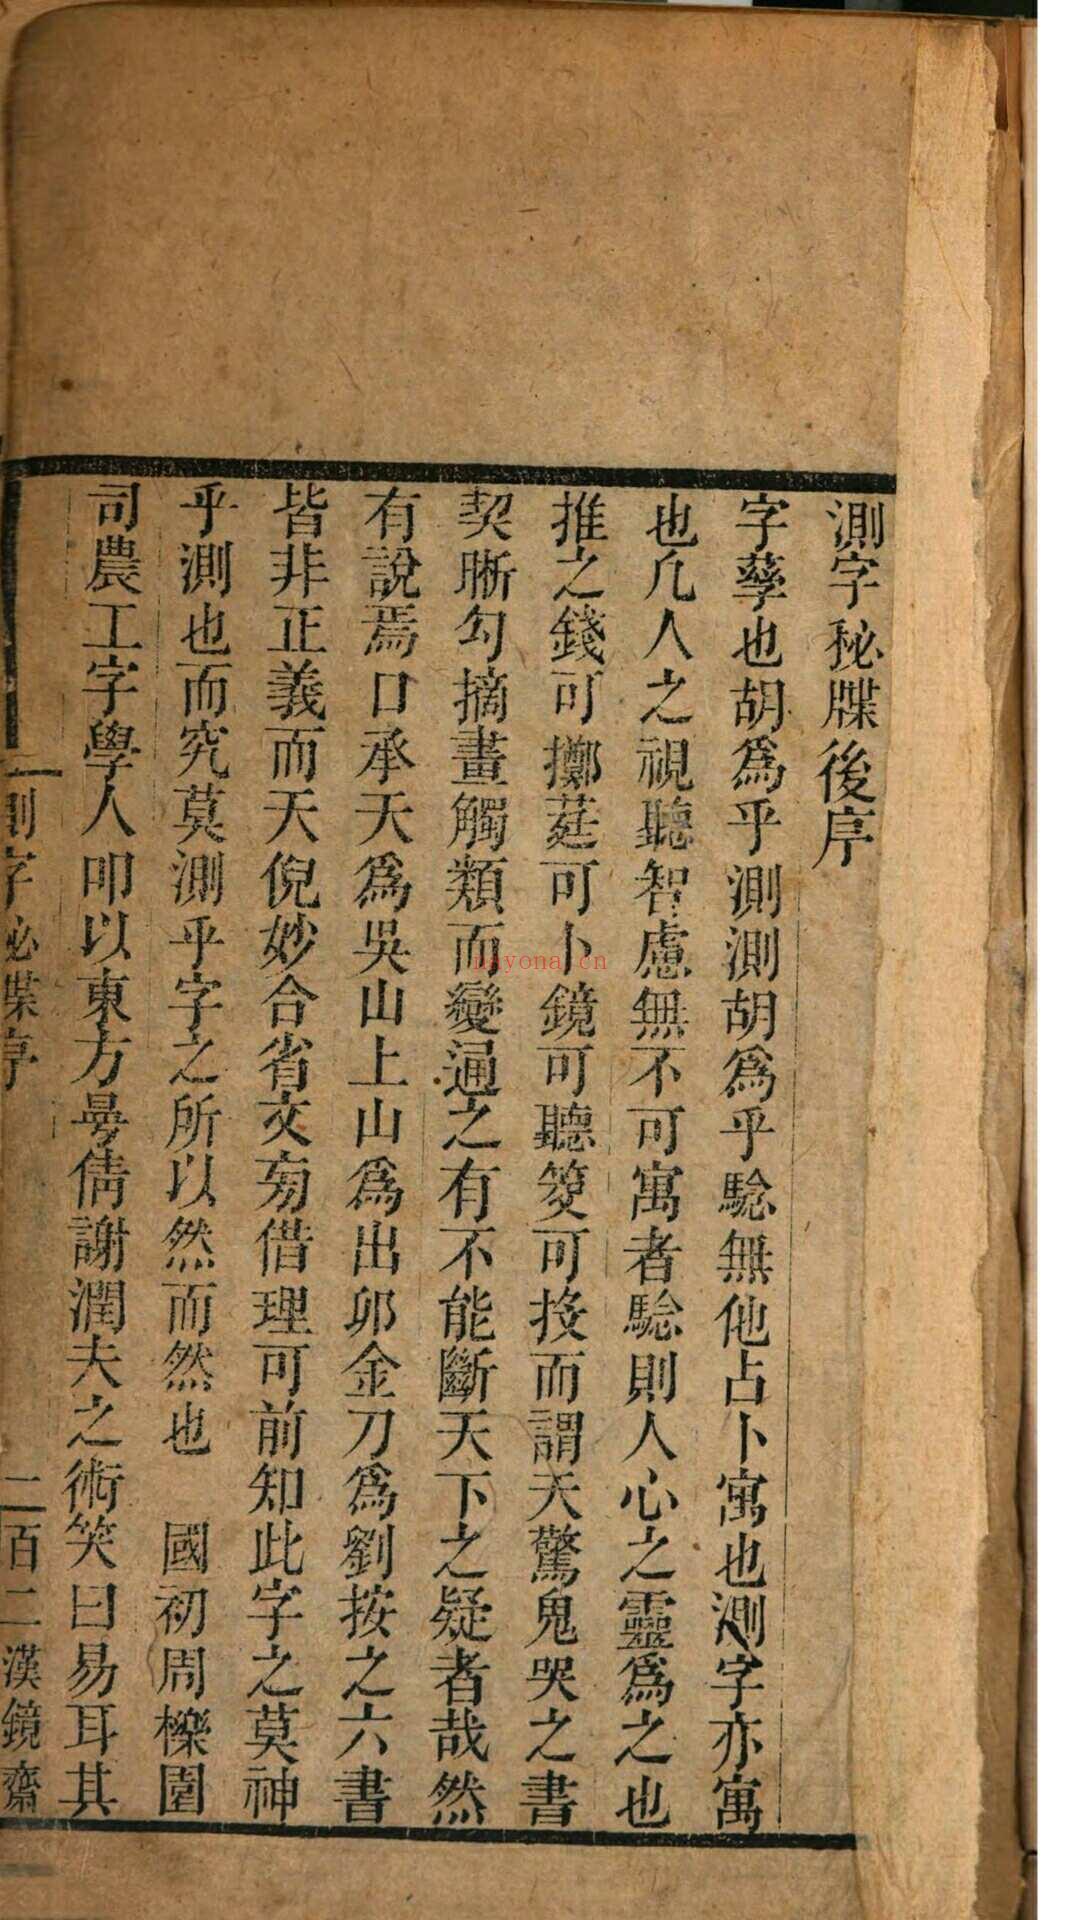 測字秘牒後序
字孳也胡爲乎測測胡爲乎驗無他占卜寓也測字亦寓
也凢人之視聽智慮無不可寓者騐則人心之靈爲之也
推之錢可擲莛可卜鏡可聽筊可投而謂天驚鬼哭之書
契晰勾摘畫觸類而變通之有不能斷天下之疑者哉然
有說焉口承天爲吳山上山爲出卯金刀爲劉按之六書
皆非正義而天倪妙合省文㫄借理可前知此字之莫神
乎測也而究莫測乎字之所以然而然也　國初周櫟園
司農工字學人叩以東方曼倩謝潤夫之術笑曰易耳其
測字秘牒序
二百二漢鏡齋
nayona.cn